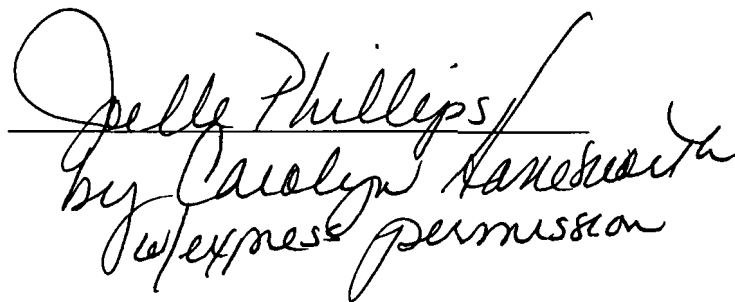 Joelle Phillips/
by Carolyn Hanesworth
w/express permission